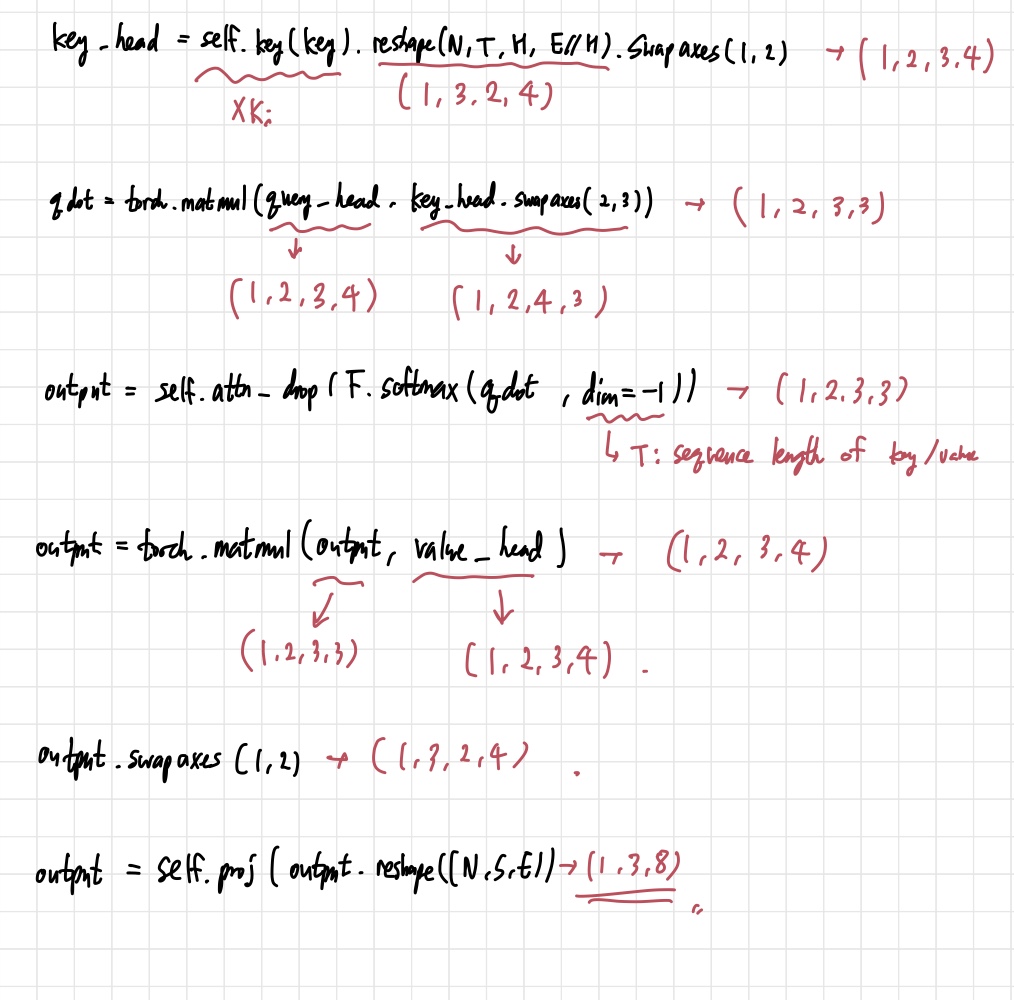 key_head = self.key(key).reshape(N, T, H, E//H).swapaxes(1,2) → (1,2,3,4)
XKi (1,3,2,4)
qdot = torch.matmul(query_head, key_head.swapaxes(2,3)) → (1,2,3,3)
↓ ↓
(1,2,3,4) (1,2,4,3)
output = self.attn_drop(F.softmax(qdot, dim=-1)) → (1,2,3,3)
↳ T: sequence length of key/value
output = torch.matmul(output, value_head) → (1,2,3,4)
(1,2,3,3) (1,2,3,4).
output.swapaxes(1,2) → (1,3,2,4).
output = self.proj(output.reshape((N,S,E)) → (1,3,8)